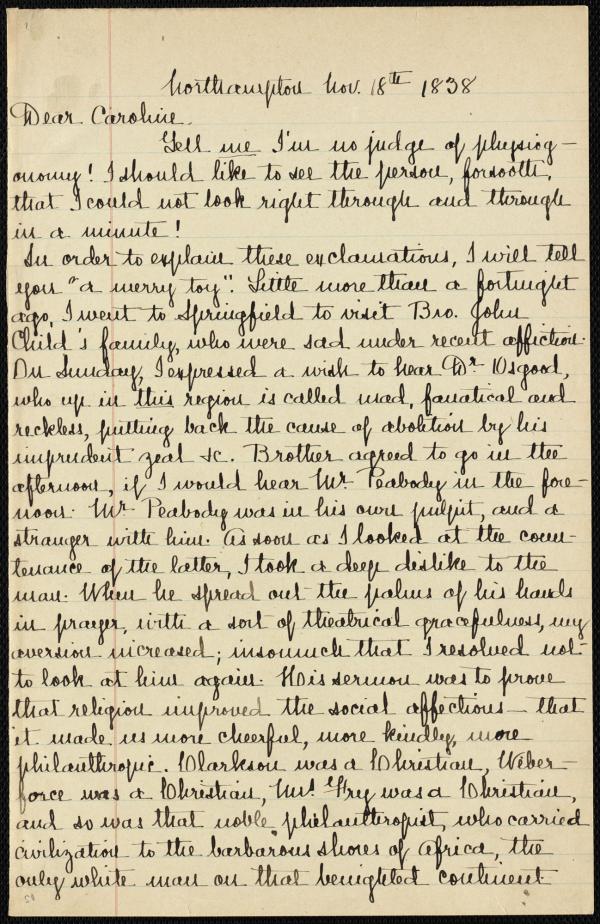 Northampton Nov. 18th 1838
Dear Caroline.
Tell me I'm no judge of physiog-
onomy! I should like to see the person, forsooth,
that I could not look right through and through
in a minute!
In order to explain these exclamations, I will tell
you "a merry toy". Little more than a fortnight
ago, I went to Springfield to visit Bro. John
Child's family, who were sad under recent affliction.
On Sunday, I expressed a wish to hear Dr. Osgood,
who up in this region is called mad, fanatical and
reckless, putting back the cause of abolition by his
imprudent zeal &c. Brother agreed to go in the
afternoon, if I would hear Mr. Peabody in the fore-
noon. Mr. Peabody was in his own pulpit, and a
stranger with him. As soon as I looked at the coun-
tenance of the latter, I took a deep dislike to the
man. When he spread out the palms of his hands
in prayer, with a sort of theatrical gracefulness, my
aversion increased; insomuch that I resolved not
to look at him again. His sermon was to prove
that religion improved the social affections - that
it made us more cheerful, more kindly, more
philanthropic. Clarkson was a Christian, Weber-
force was a Christian, Mrs. Fry was a Christian,
and so was that noble philanthropist, who carried
civilization to the barbarous shores of Africa, the
only white man on that benighted continent